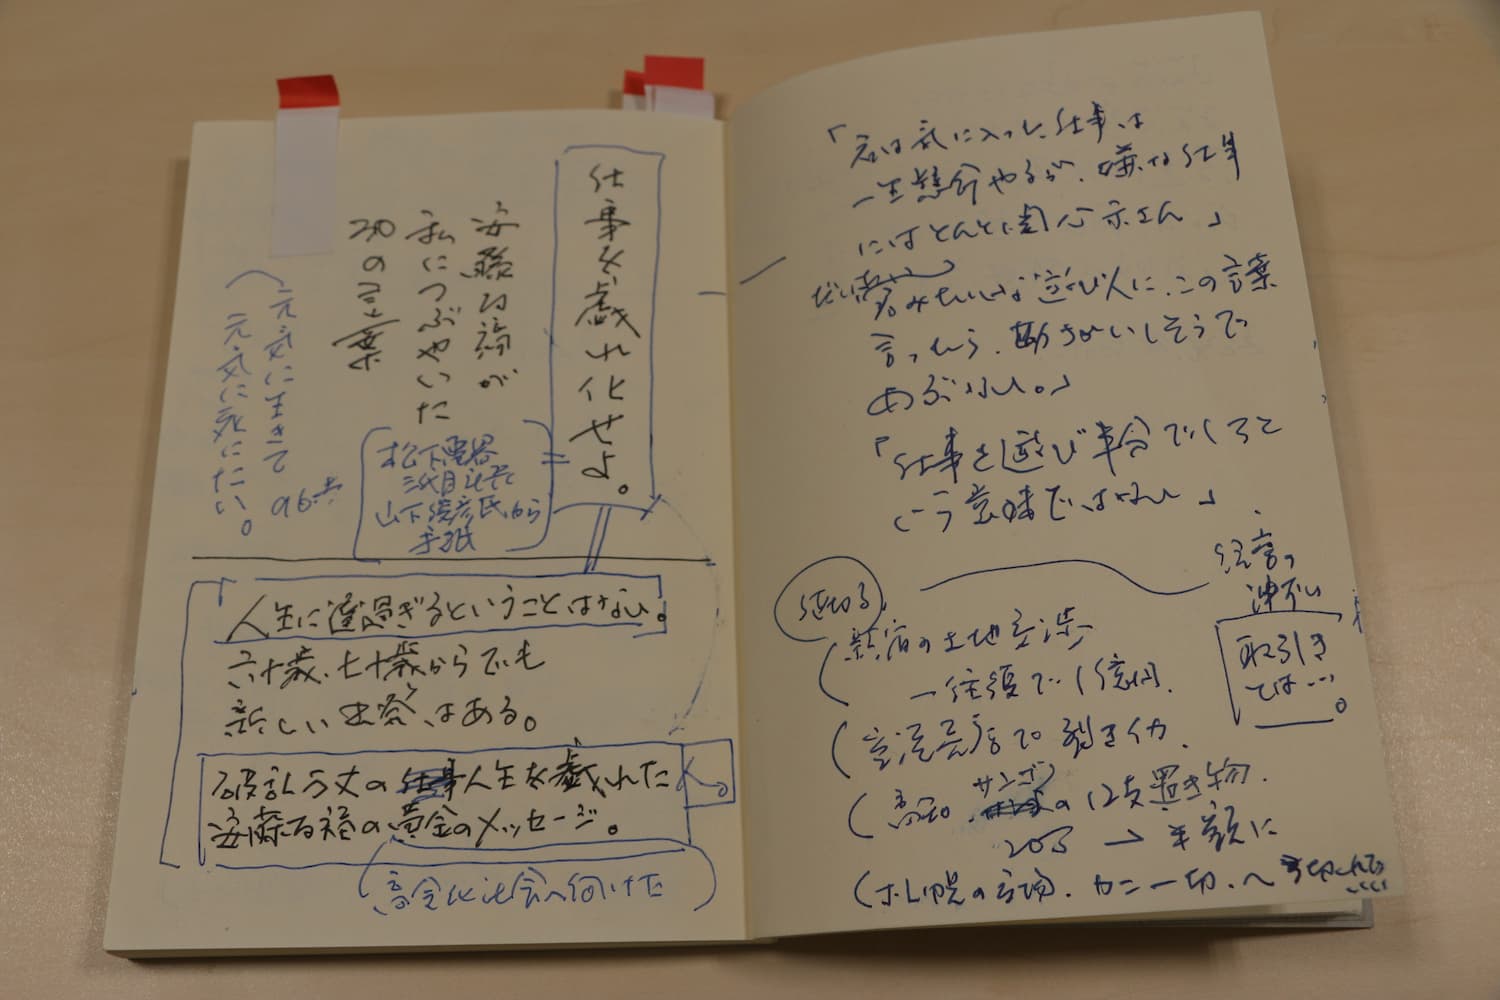 仕事を戯れ化せよ。
安藤百福が
私につぶやいた
30の言葉
元気に生きて
元気に死にたい。
96才
松下電器
三代目社長
山下俊彦氏から
手紙
「人生に遅過ぎるということはない。
六十歳、七十歳からでも
新しい出発はある。
波乱万丈の人生を戯れた
安藤百福の黄金のメッセージ。
高令化社会へ向けた
「君は気に入った仕事は
一生懸命やるが、嫌な仕事
にはとんと関心示さん」
みたいな遊び人に、この言葉
言ったら、勘ちがいしそうで
あぶない。」
「仕事を遊び半分でしろと
いう意味ではない」
値切る
経営の
取引き
では…。
(新宿の土地交渉
一往復で1億円。
(高知 サンゴの12支置き物。
20万→半額に
(札幌の市場、カニ一切、